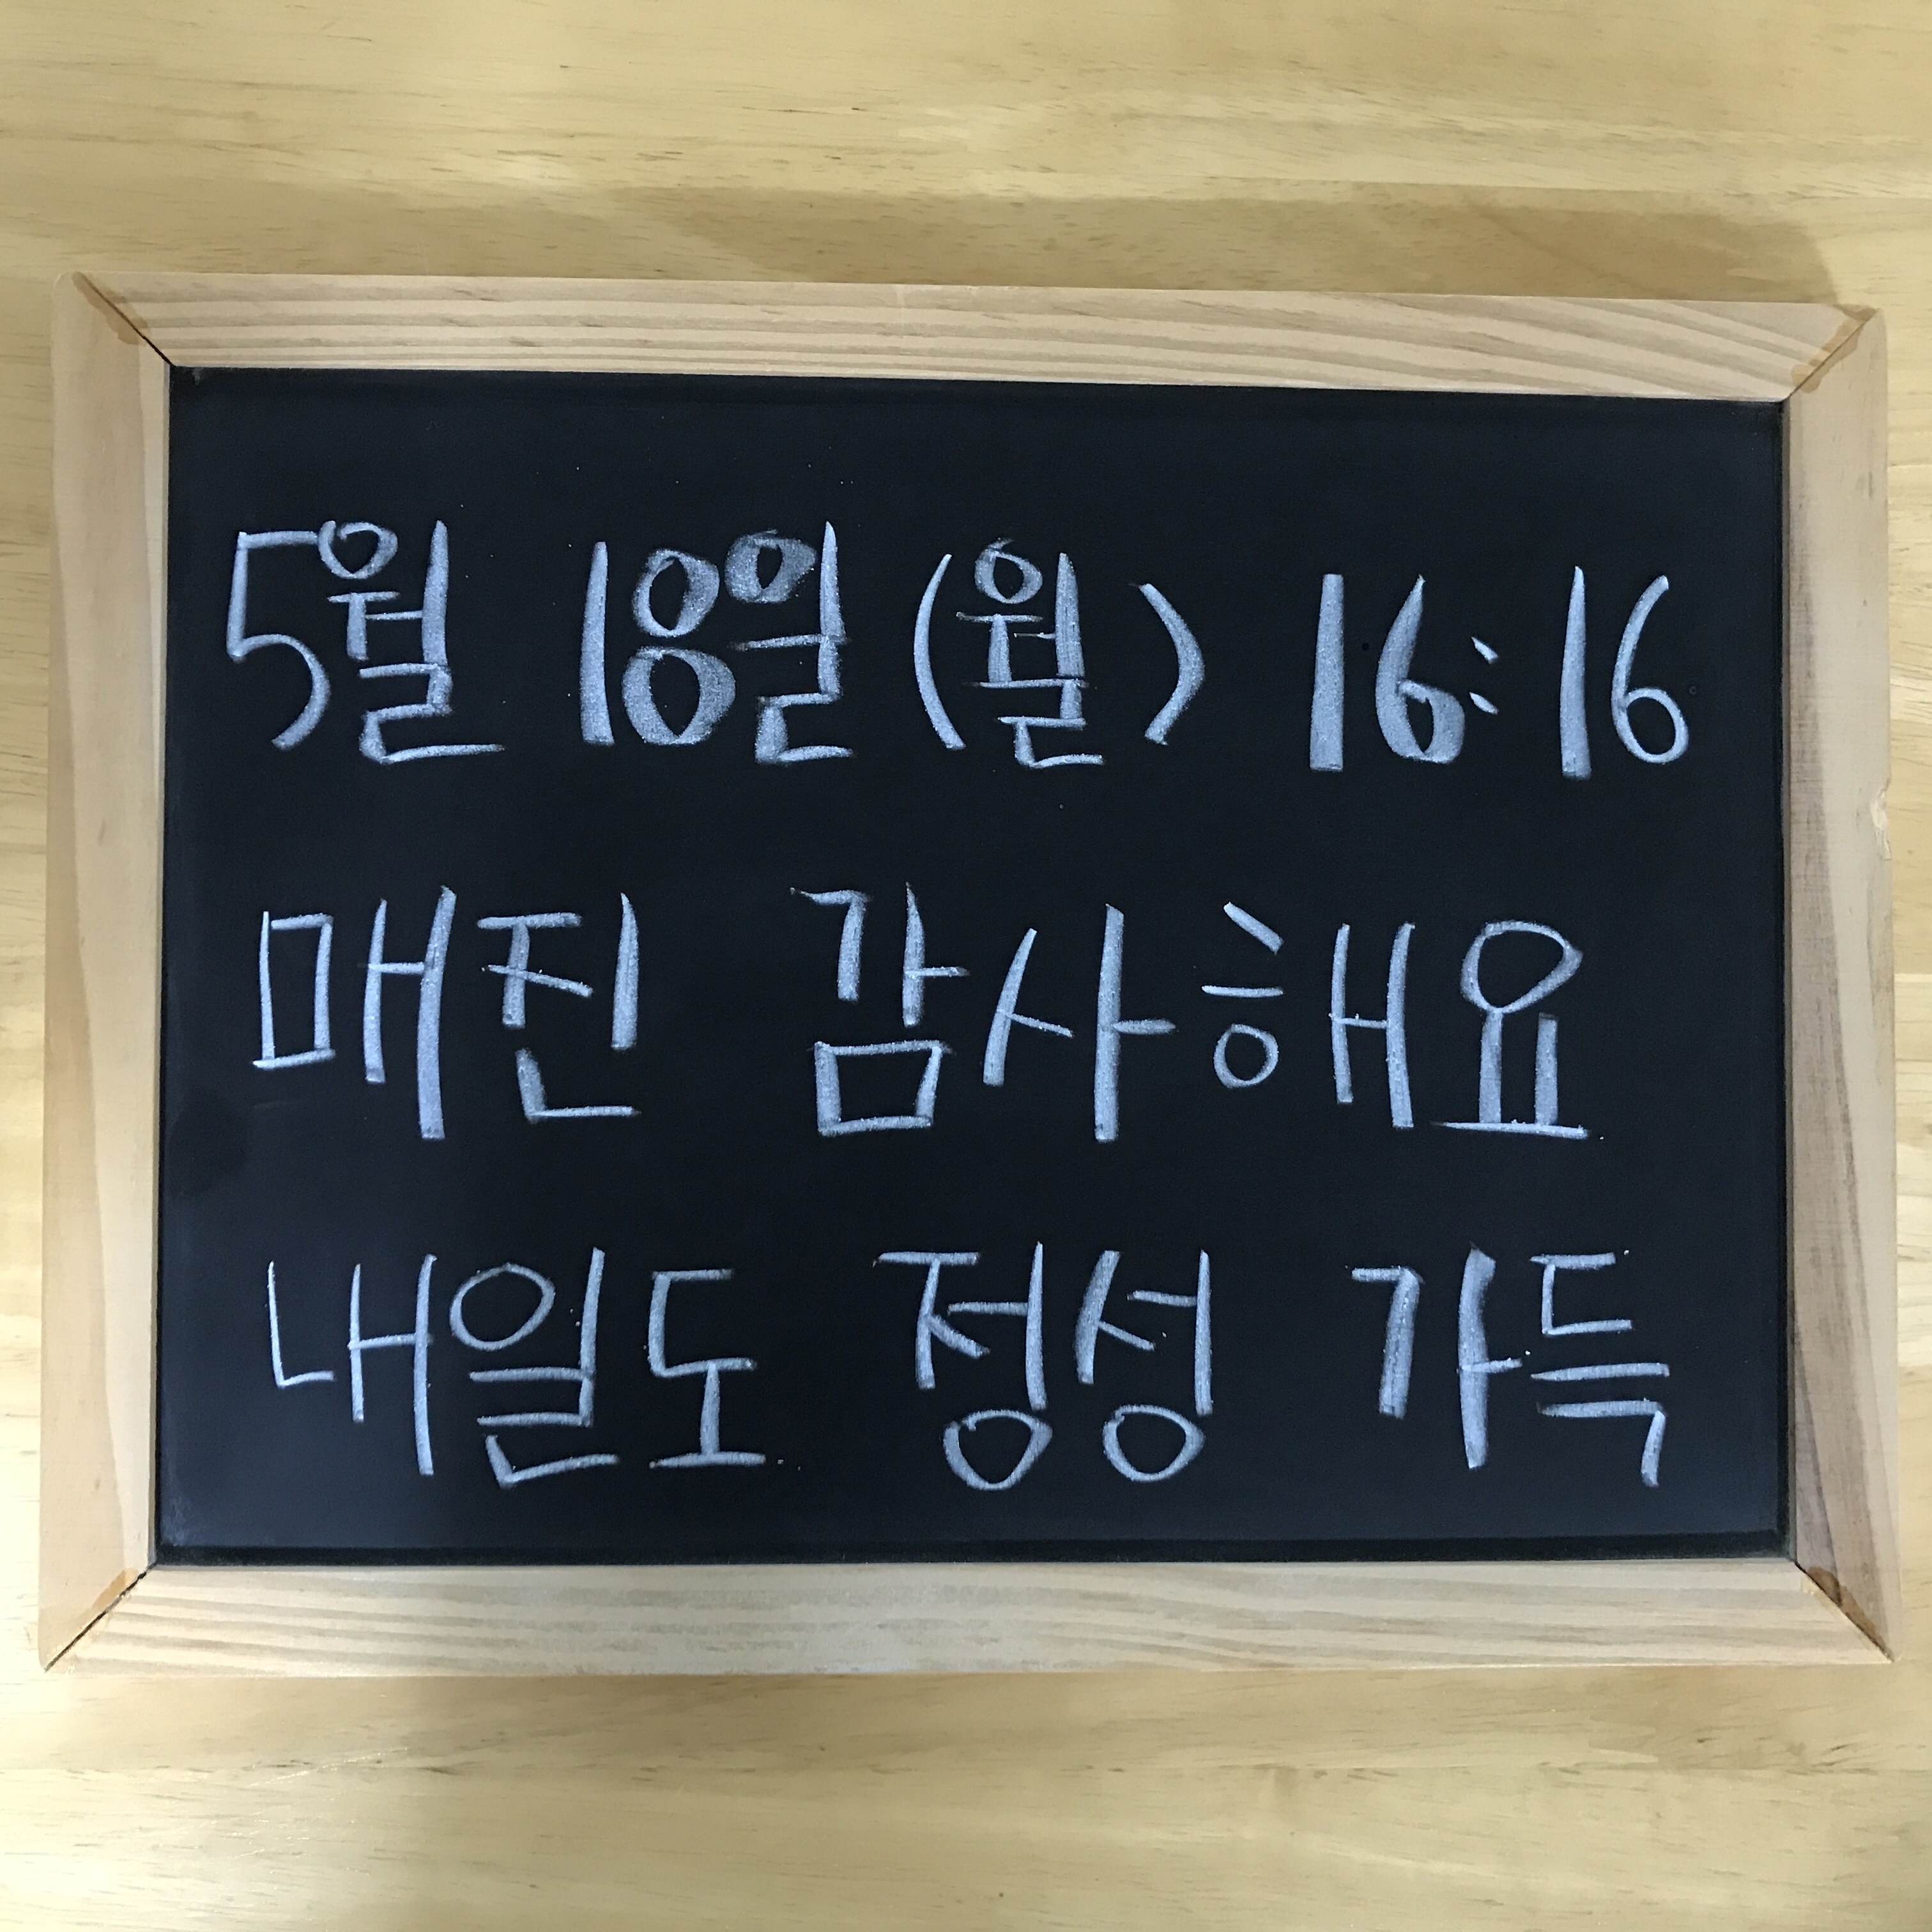 5월 18일 (월) 16:16
매진 감사해요
내일도 정성 가득